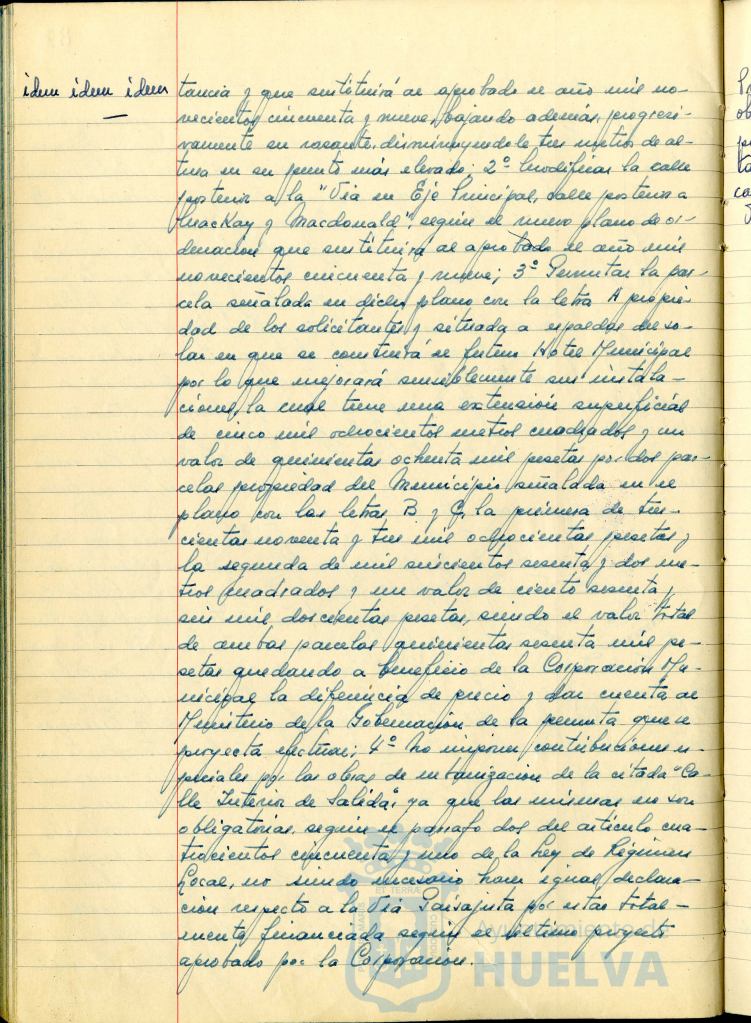 idem idem idem
tancia y que sustituirá al aprobado el año mil no-
vecientos cincuenta y nueve, bajando además, progresi-
vamente su rasante, disminuyendole tres metros de al-
tura en su punto más elevado; 2º Modificar la calle
posterior a la "Via en Eje Principal, calle posterior a
MacKay y Macdonald", según el nuevo plano de or-
denación que sustituirá al aprobado el año mil
novecientos cincuenta y nueve; 3º Permutar la par-
cela señalada en dicho plano con la letra A propie-
dad de los solicitantes y situada a espaldas del so-
lar en que se construirá el futuro Hotel Municipal
por lo que mejorará sensiblemente sus instala-
ciones, la cual tiene una extensión superficial
de cinco mil ochocientos metros cuadrados y un
valor de quinientas ochenta mil pesetas por dos par-
celas propiedad del Municipio señalada en el
plano con las letras B y C, la primera de tres-
cientas noventa y tres mil ochocientas pesetas y
la segunda de mil seiscientos sesenta y dos me-
tros cuadrados y un valor de ciento sesenta y
seis mil doscientas pesetas, siendo el valor total
de ambas parcelas quinientas sesenta mil pe-
setas quedando a beneficio de la Corporación Mu-
nicipal la diferencia de precio y dar cuenta al
Ministerio de la Gobernación de la permuta que se
proyecta efectuar; 4º No imponer contribuciones es-
peciales por las obras de urbanización de la citada "Ca-
lle Interior de Salida", ya que las mismas no son
obligatorias, según el párrafo dos del artículo cua-
trocientos cincuenta y uno de la Ley de Régimen
Local, no siendo necesario hacer igual declara-
ción respecto a la Via Paisajista por estar total-
mente financiada según el último proyecto
aprobado por la Corporación.
Ayuntamiento de
HUELVA